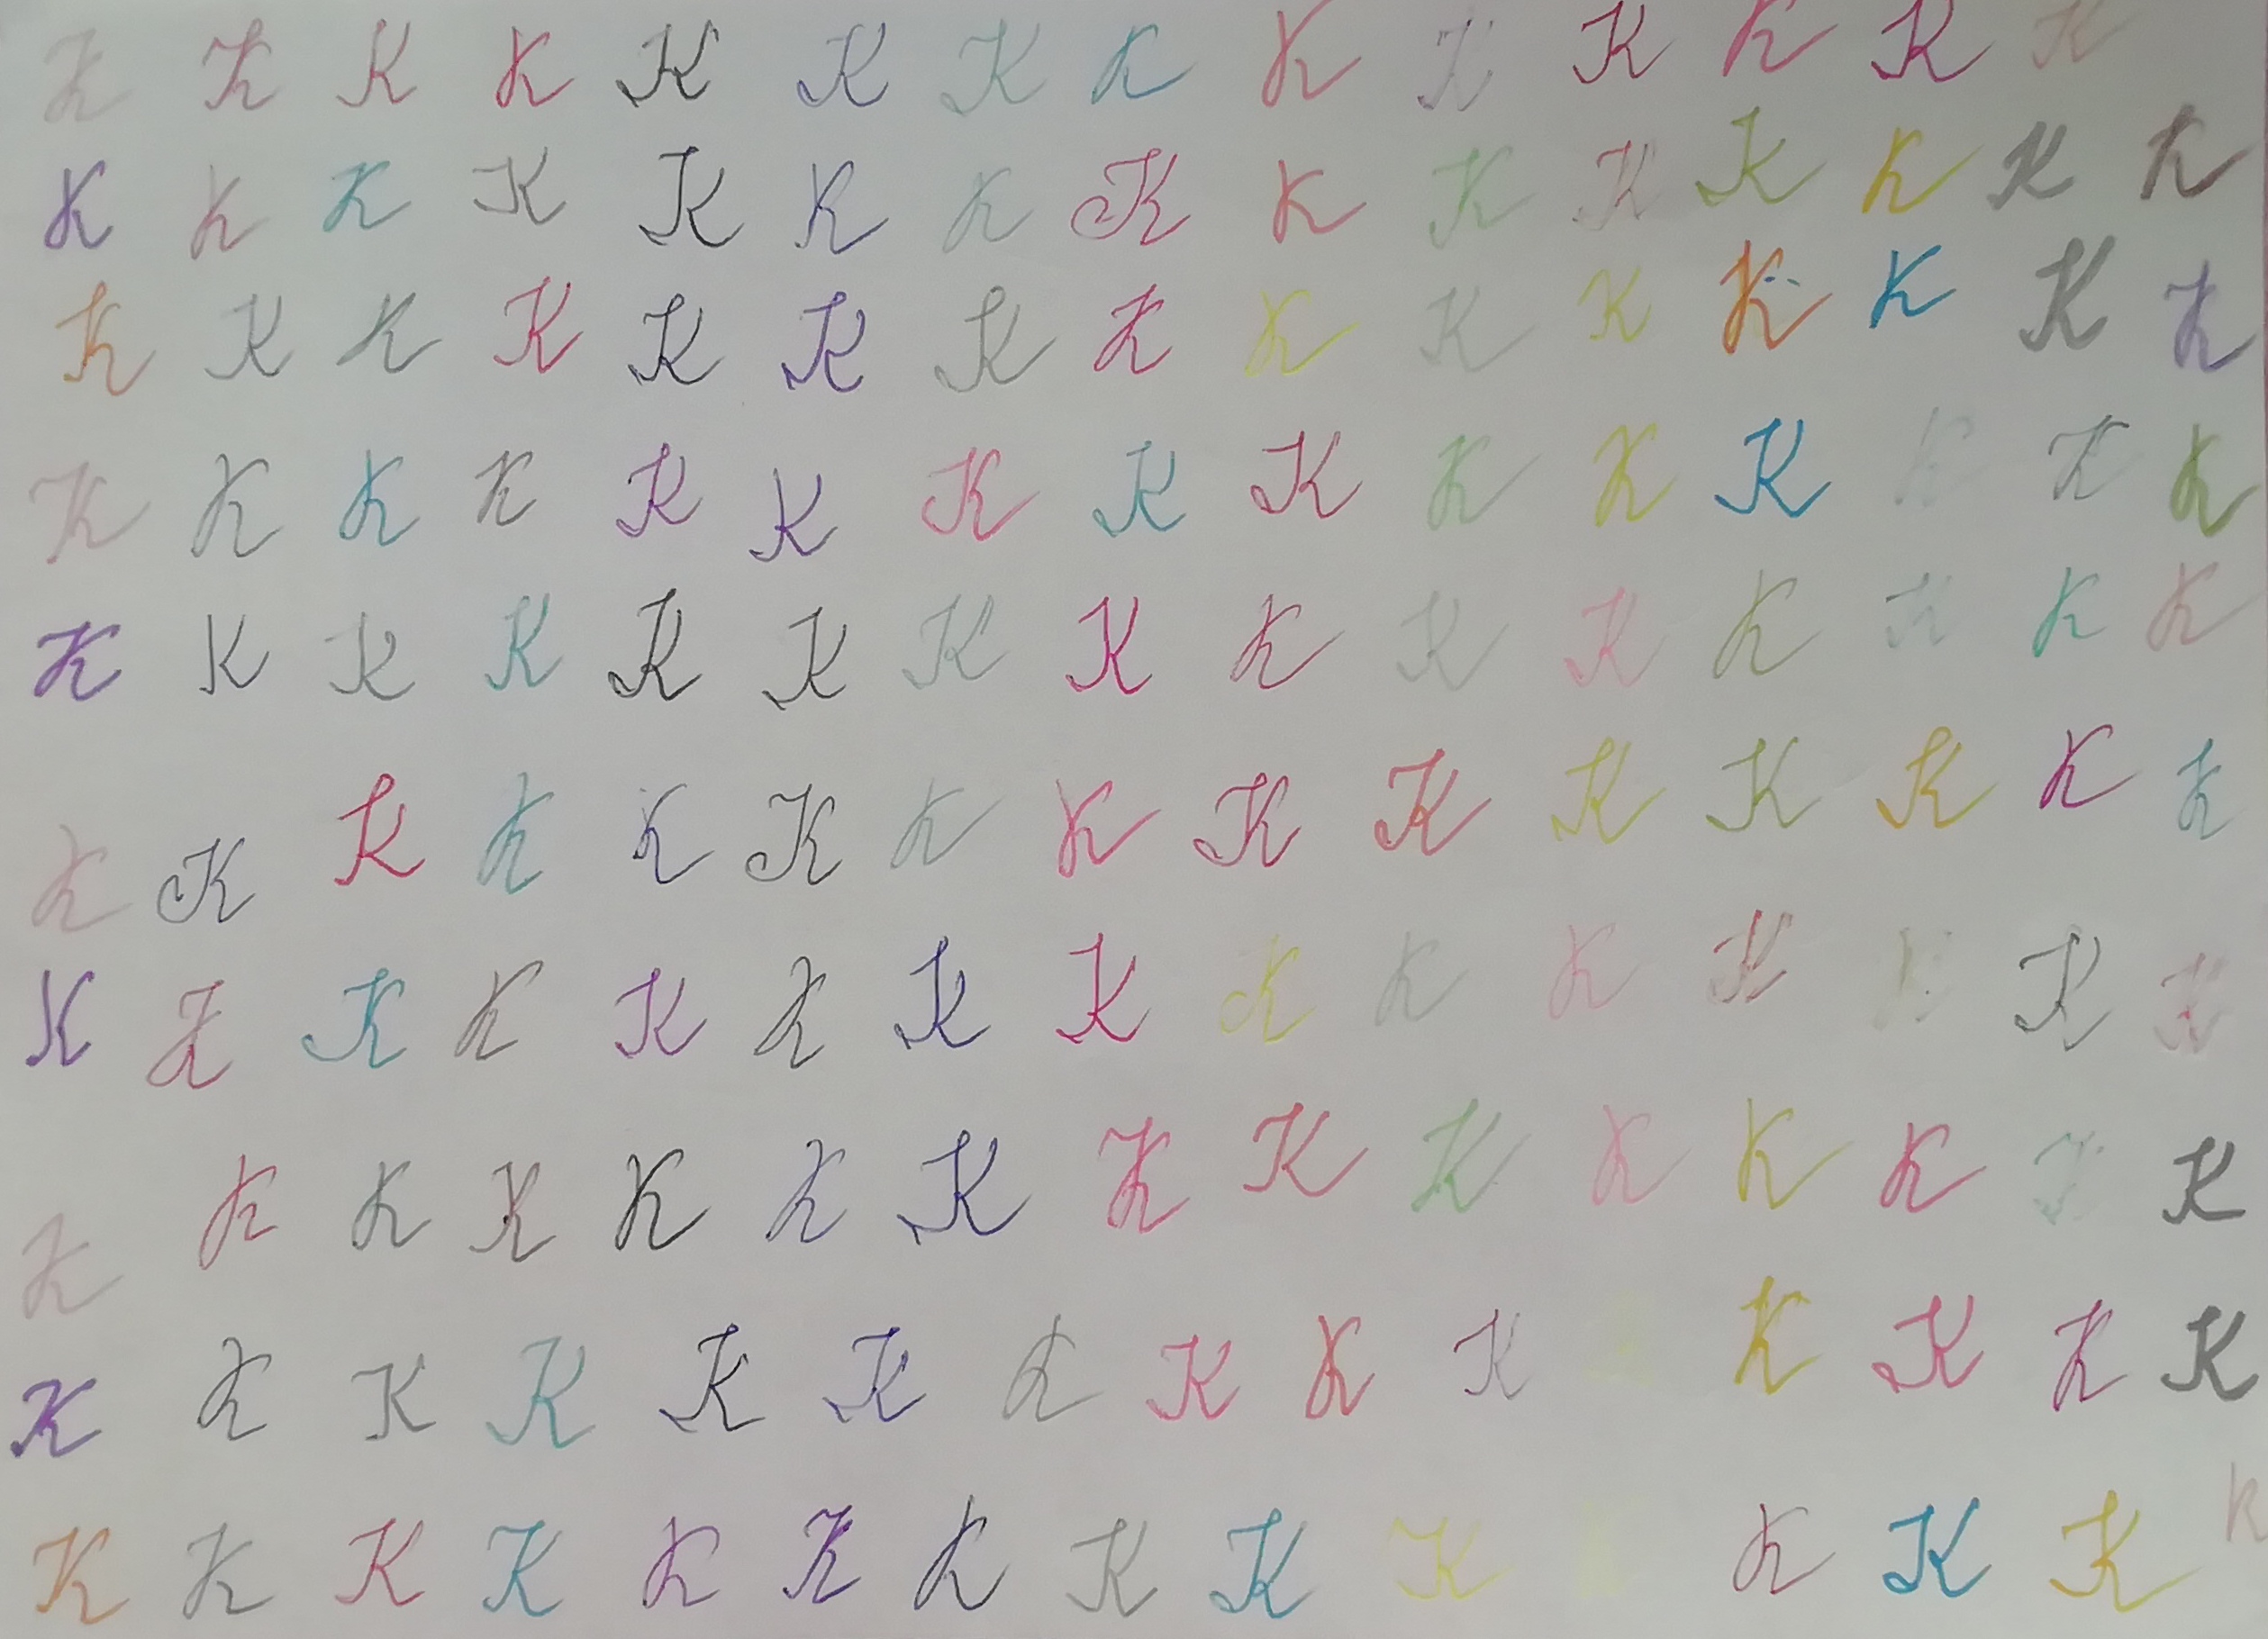 K K K K K K K K K K K K K K
K K K K K K K K K K K K K K K
K K K K K K K K K K K K K K K
K K K K K K K K K K K K K K K
K K K K K K K K K K K K K K K
K K K K K K K K K K K K K K K
K K K K K K K K K K K K K K K
K K K K K K K K K K K K K K K
K K K K K K K K K K K K K K
K K K K K K K K K K K K K K